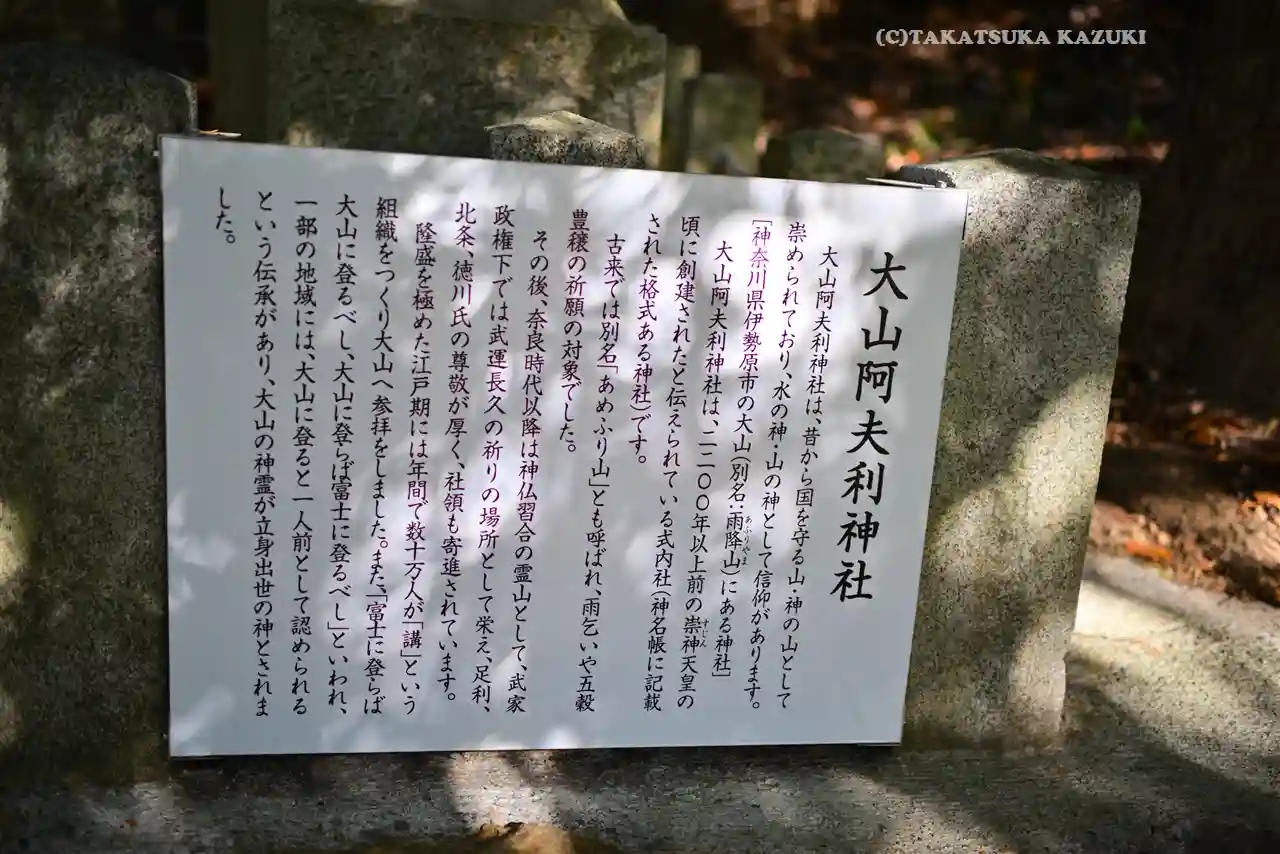 (C)TAKATSUKA KAZUKI
大山阿夫利神社
大山阿夫利神社は、昔から国を守る山・神の山として
崇められており、水の神・山の神として信仰があります。
[神奈川県伊勢原市の大山(別名:雨降山)にある神社]
あふりやま
大山阿夫利神社は、二二〇〇年以上前の崇神天皇の
すじん
頃に創建されたと伝えられている式内社(神名帳に記載
された格式ある神社)です。
古来では別名「あめふり山」とも呼ばれ、雨乞いや五穀
豊穣の祈願の対象でした。
その後、奈良時代以降は神仏習合の霊山として、武家
政権下では武運長久の祈りの場所として栄え、足利、
北条、徳川氏の尊敬が厚く、社領も寄進されています。
隆盛を極めた江戸期には年間で数十万人が「講」という
組織をつくり大山へ参拝をしました。また、「富士に登らば
大山に登るべし、大山に登らば富士に登るべし」といわれ、
一部の地域には、大山に登ると一人前として認められる
という伝承があり、大山の神霊が立身出世の神とされま
した。